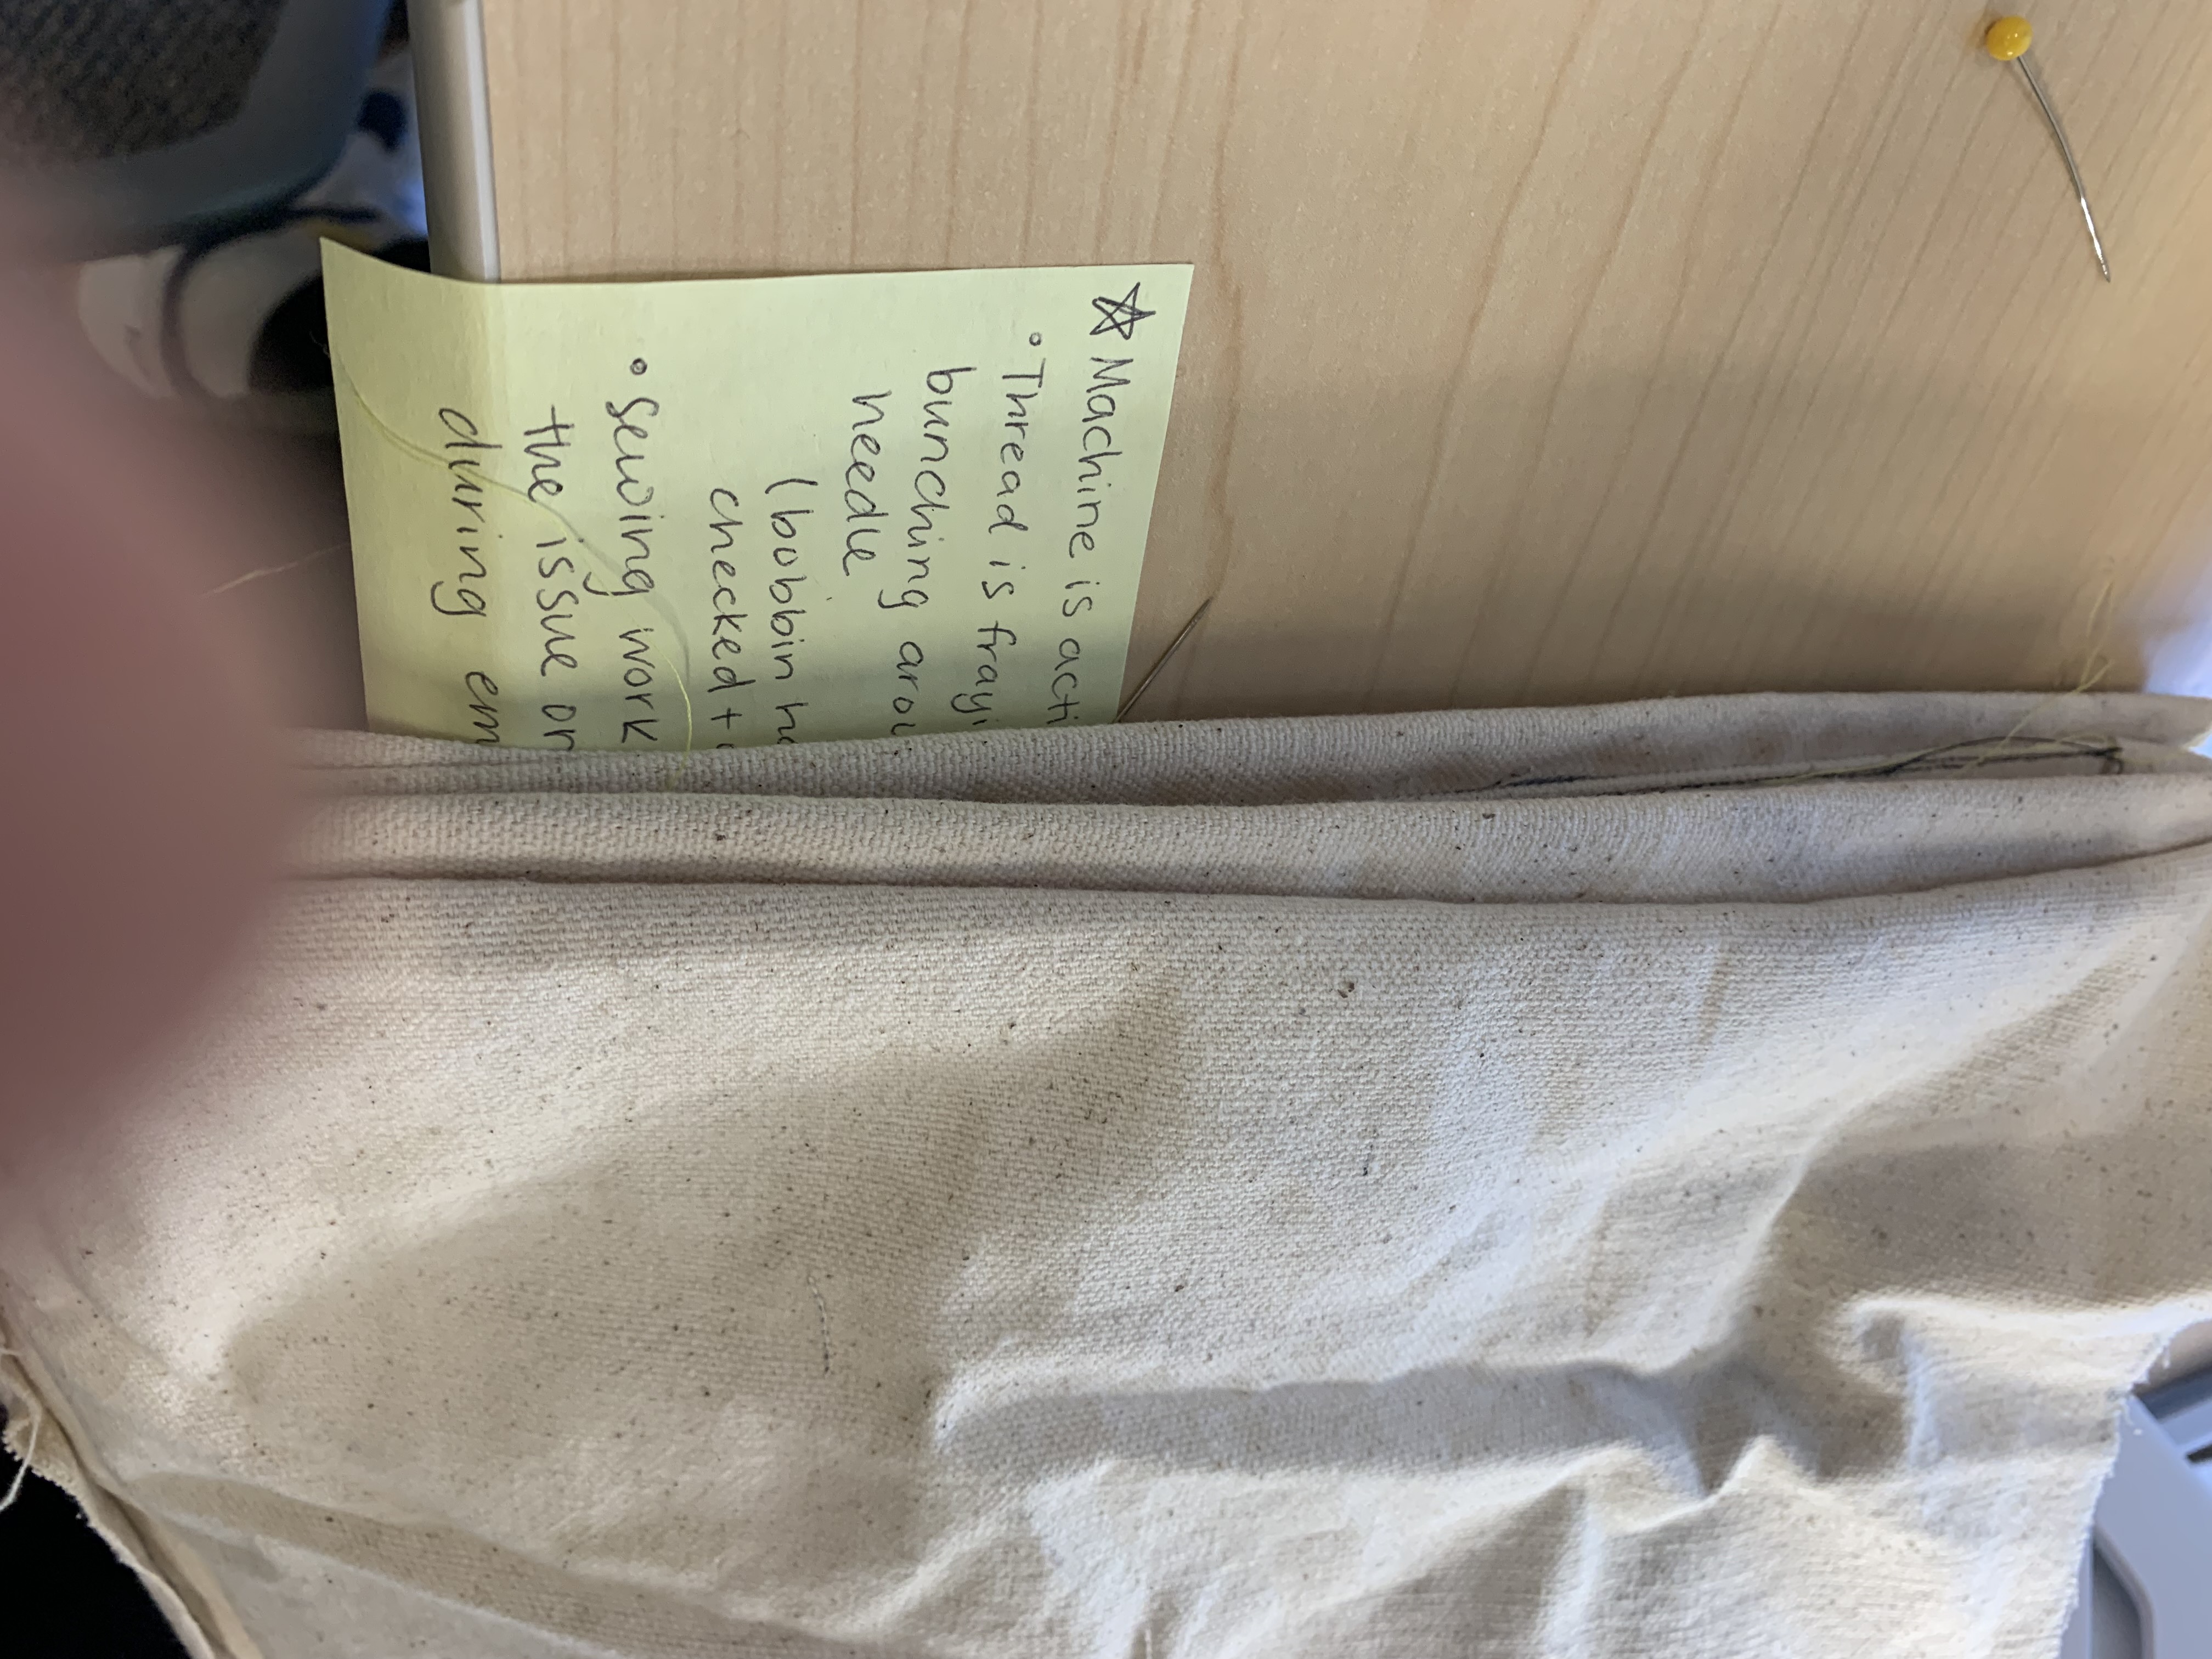 ☆ Machine is acti
• Thread is frayi
bunching arou
needle
(bobbin ho
checked +
• Sewing work
the issue on
during em